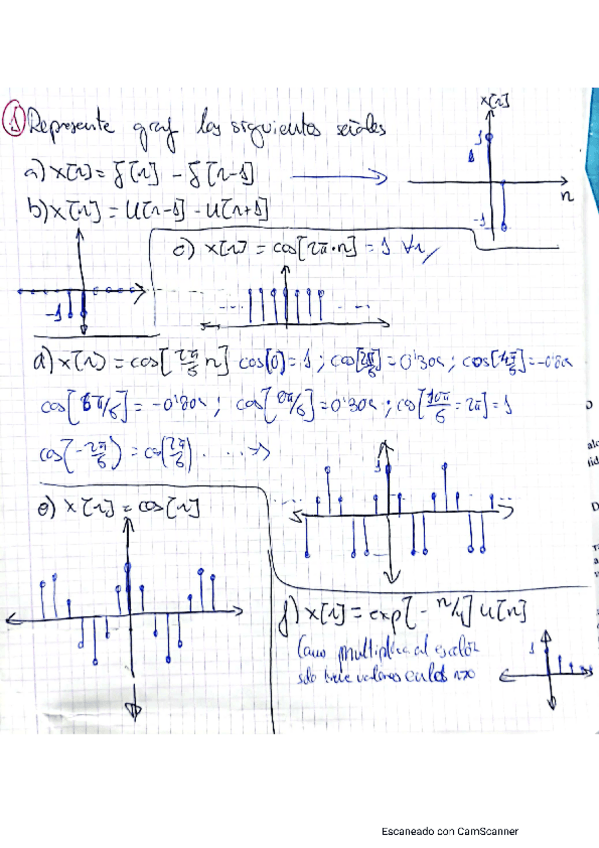 ① Represente graf las siguientes señales
x[n]
1
a) x[n] = δ[n] - δ[n-1]
n
-1
b) x[n] = u[n-1] - u[n+1]
c) x[n] = cos[2π·n] = 1 ∀n
-1
d) x[n] = cos[2π/5 n] cos[0] = 1 ; cos[2π/5] = 0'309 ; cos[4π/5] = -0'809
cos[6π/5] = -0'809 ; cos[8π/5] = 0'309 ; cos[10π/5 = 2π] = 1
cos(-2π/5) = cos(2π/5) .....→
1
e) x[n] = cos[n]
f) x[n] = exp[-n/4] u[n]
Como multiplica al escalón
solo tiene valores en los n>0
1
Escaneado con CamScanner